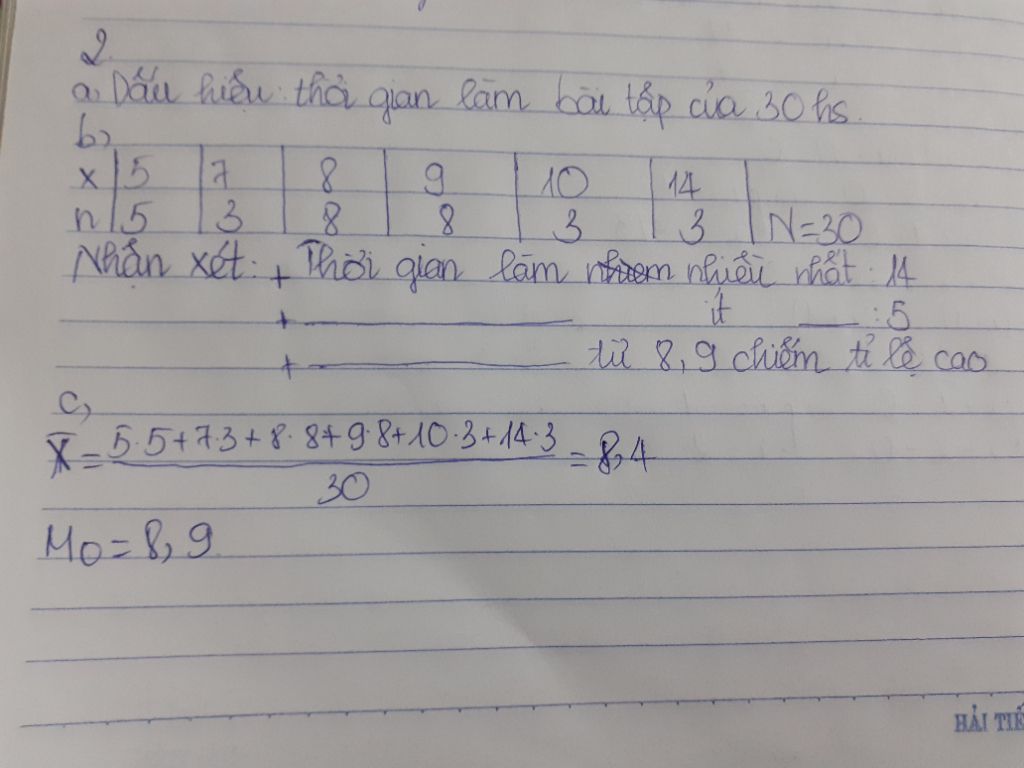 2
a, Dấu hiệu: thời gian làm bài tập của 30 hs.
b)
x 5 7 8 9 10 14
n 5 3 8 8 3 3 N=30
Nhận xét: + Thời gian làm nhiều nhất: 14
+ ———— ít —— : 5
+ ———— từ 8, 9 chiếm tỉ lệ cao
c,
X̄ = 5·5+7·3+8·8+9·8+10·3+14·3 / 30 = 8,4
M0 = 8, 9
HẢI TIẾ